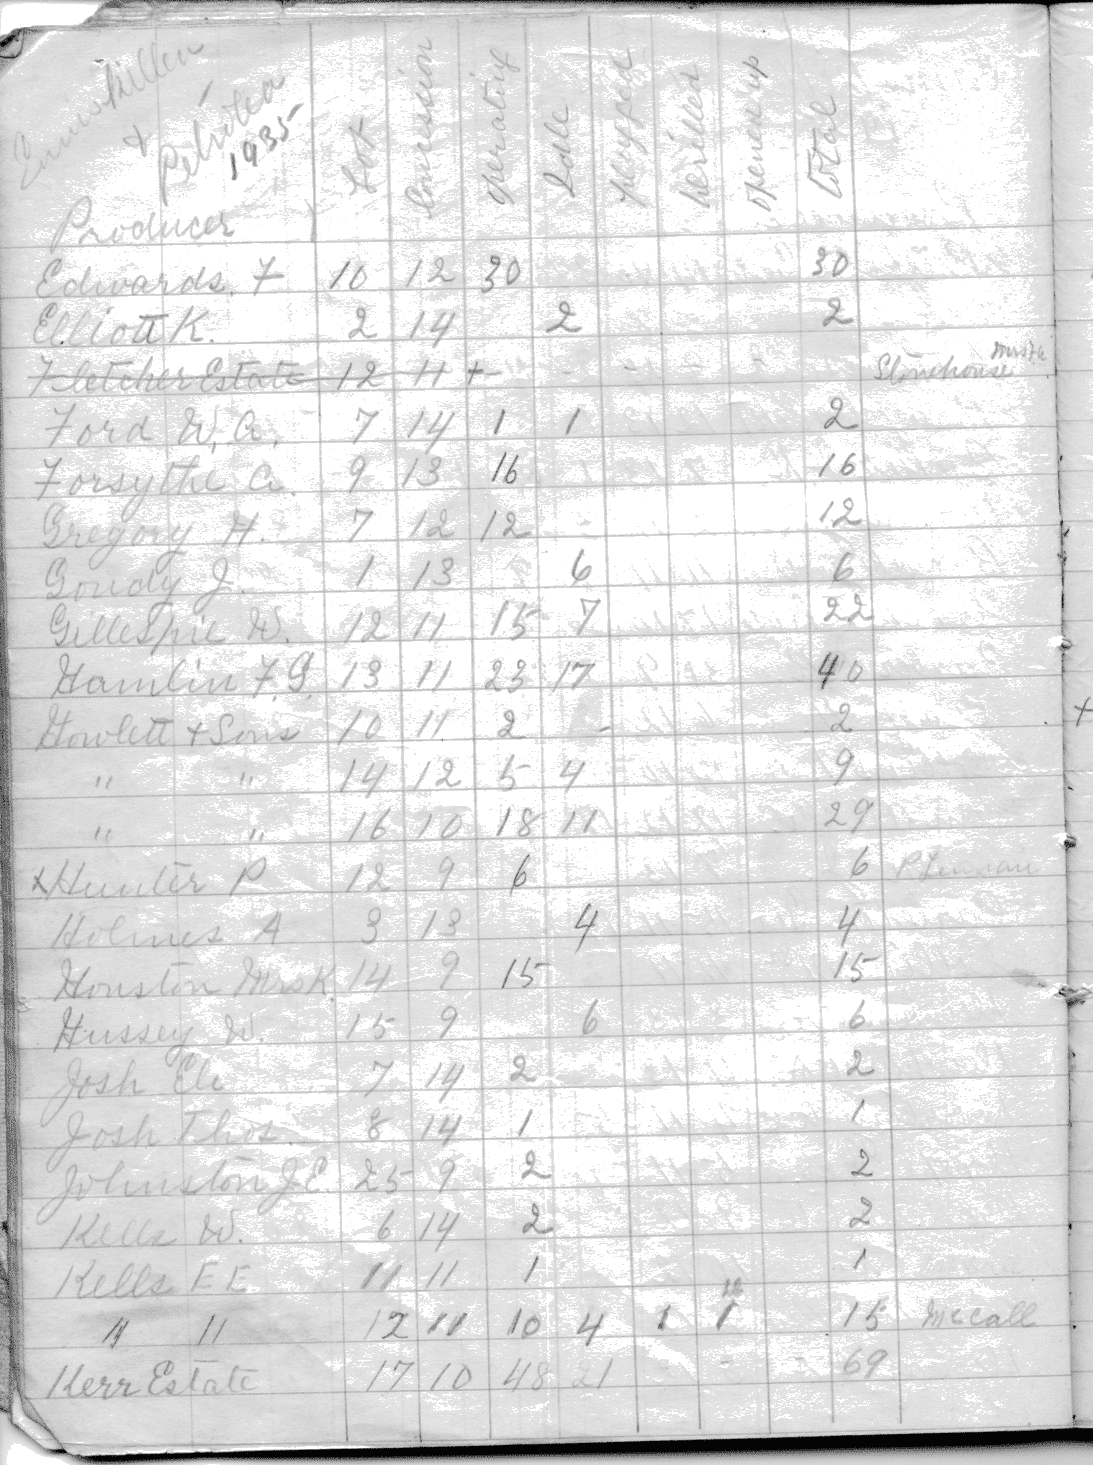 Enniskillen
+
Petrolea
1935
Producer Lot Concession operating Idle plugged drilled opened up total
Edwards. F 10 12 30 30
Elliott K. 2 14 2 2
Fletcher Estate 12 11 + - - - - Stonehouse
Ford W. A. 7 14 1 1 2
Forsythe A. 9 13 16 16
Gregory H. 7 12 12 - 12
Goudy J. 1 13 6 6
Gillespie W. 12 11 15 7 22
Hamlin F. G. 13 11 23 17 40
Howlett + Sons 10 11 2 - 2
" " 14 12 5 4 9
" " 16 10 18 11 29
x Hunter P 12 9 6 6
Holmes A 3 13 4 4
Houston Mrs K. 14 9 15 15
Hussey W. 15 9 6 6
Josh Eli 7 14 2 2
Josh Thos. 8 14 1 1
Johnston J. E. 25 9 2 2
Kells W. 6 14 2 2
Kells E E 11 11 1 1
" 11 12 11 10 4 1 1 15 McCall
Kerr Estate 17 10 48 21 - - - 69
+